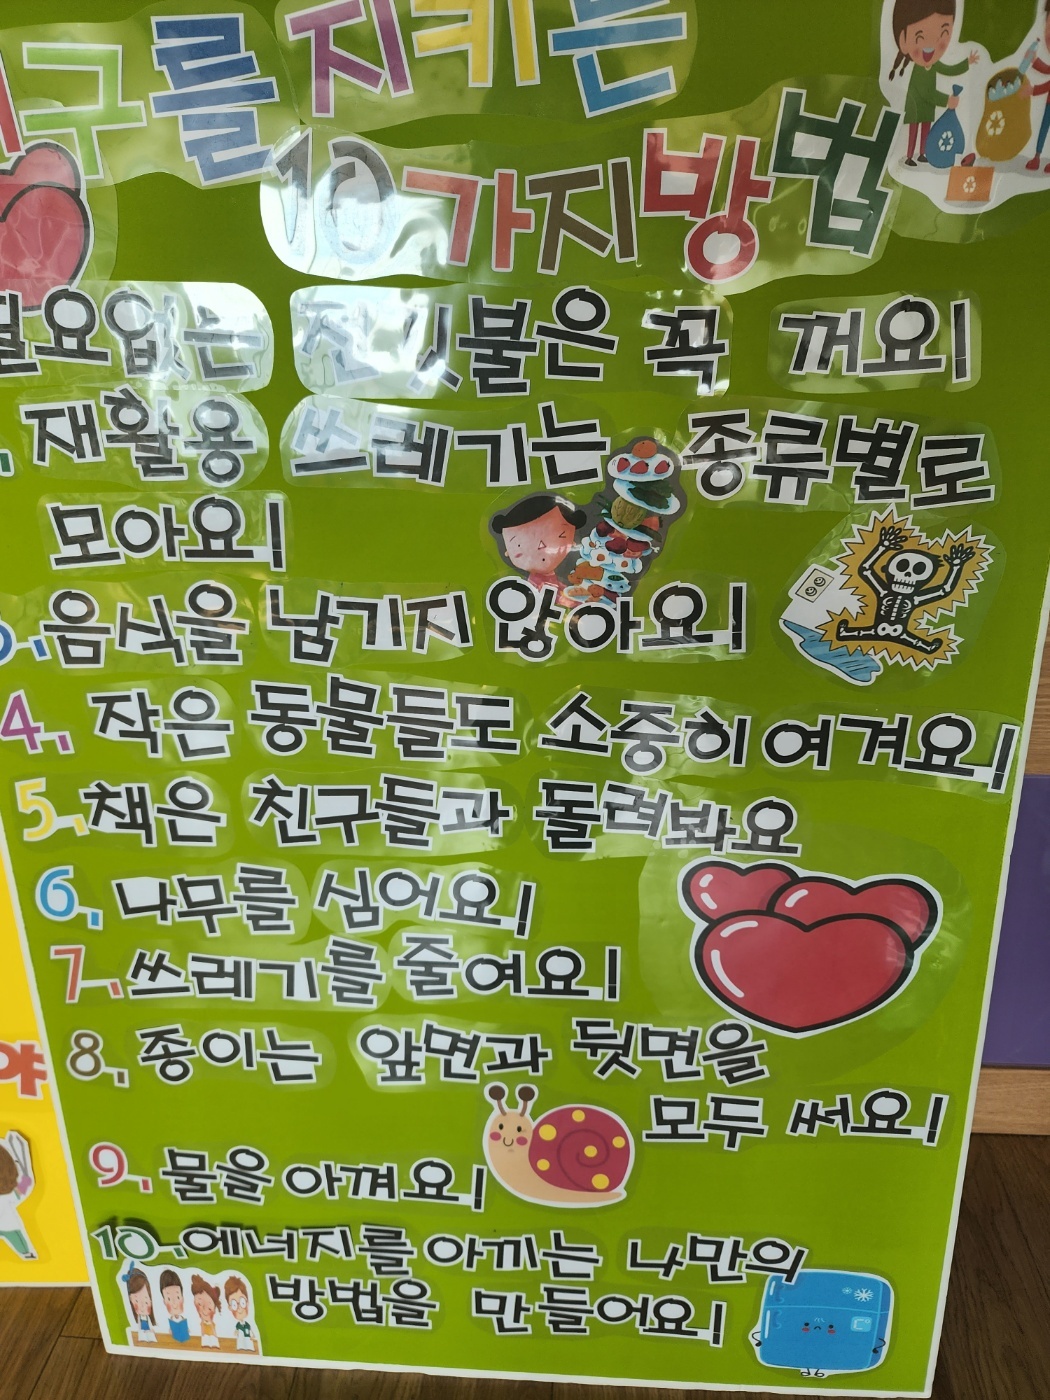 지구를 지키는
10가지 방법
필요없는 전깃불은 꼭 꺼요!
재활용 쓰레기는 종류별로
모아요!
3. 음식을 남기지 않아요!
4. 작은 동물들도 소중히 여겨요!
5. 책은 친구들과 돌려봐요
6. 나무를 심어요!
7. 쓰레기를 줄여요!
8. 종이는 앞면과 뒷면을
모두 써요!
9. 물을 아껴요!
10. 에너지를 아끼는 나만의
방법을 만들어요!
야